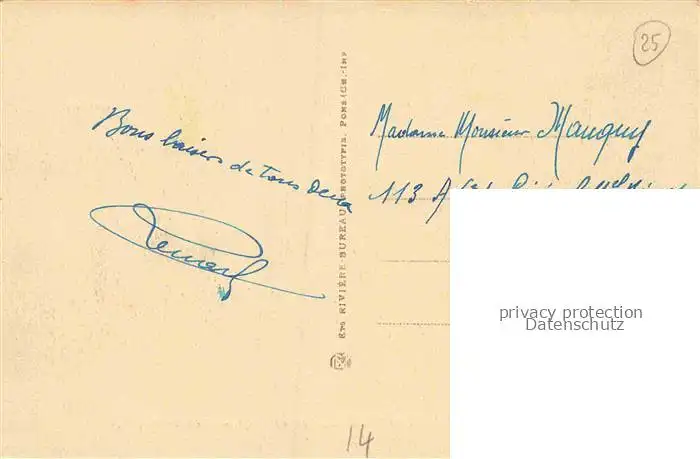 25
Bons baisers de tous deux
Ets RIVIÈRE-BUREAU, PHOTOTYPIE, PONS (CH.-INF
Madame Monsieur Mauguy
113 A
privacy protection
Datenschutz
14